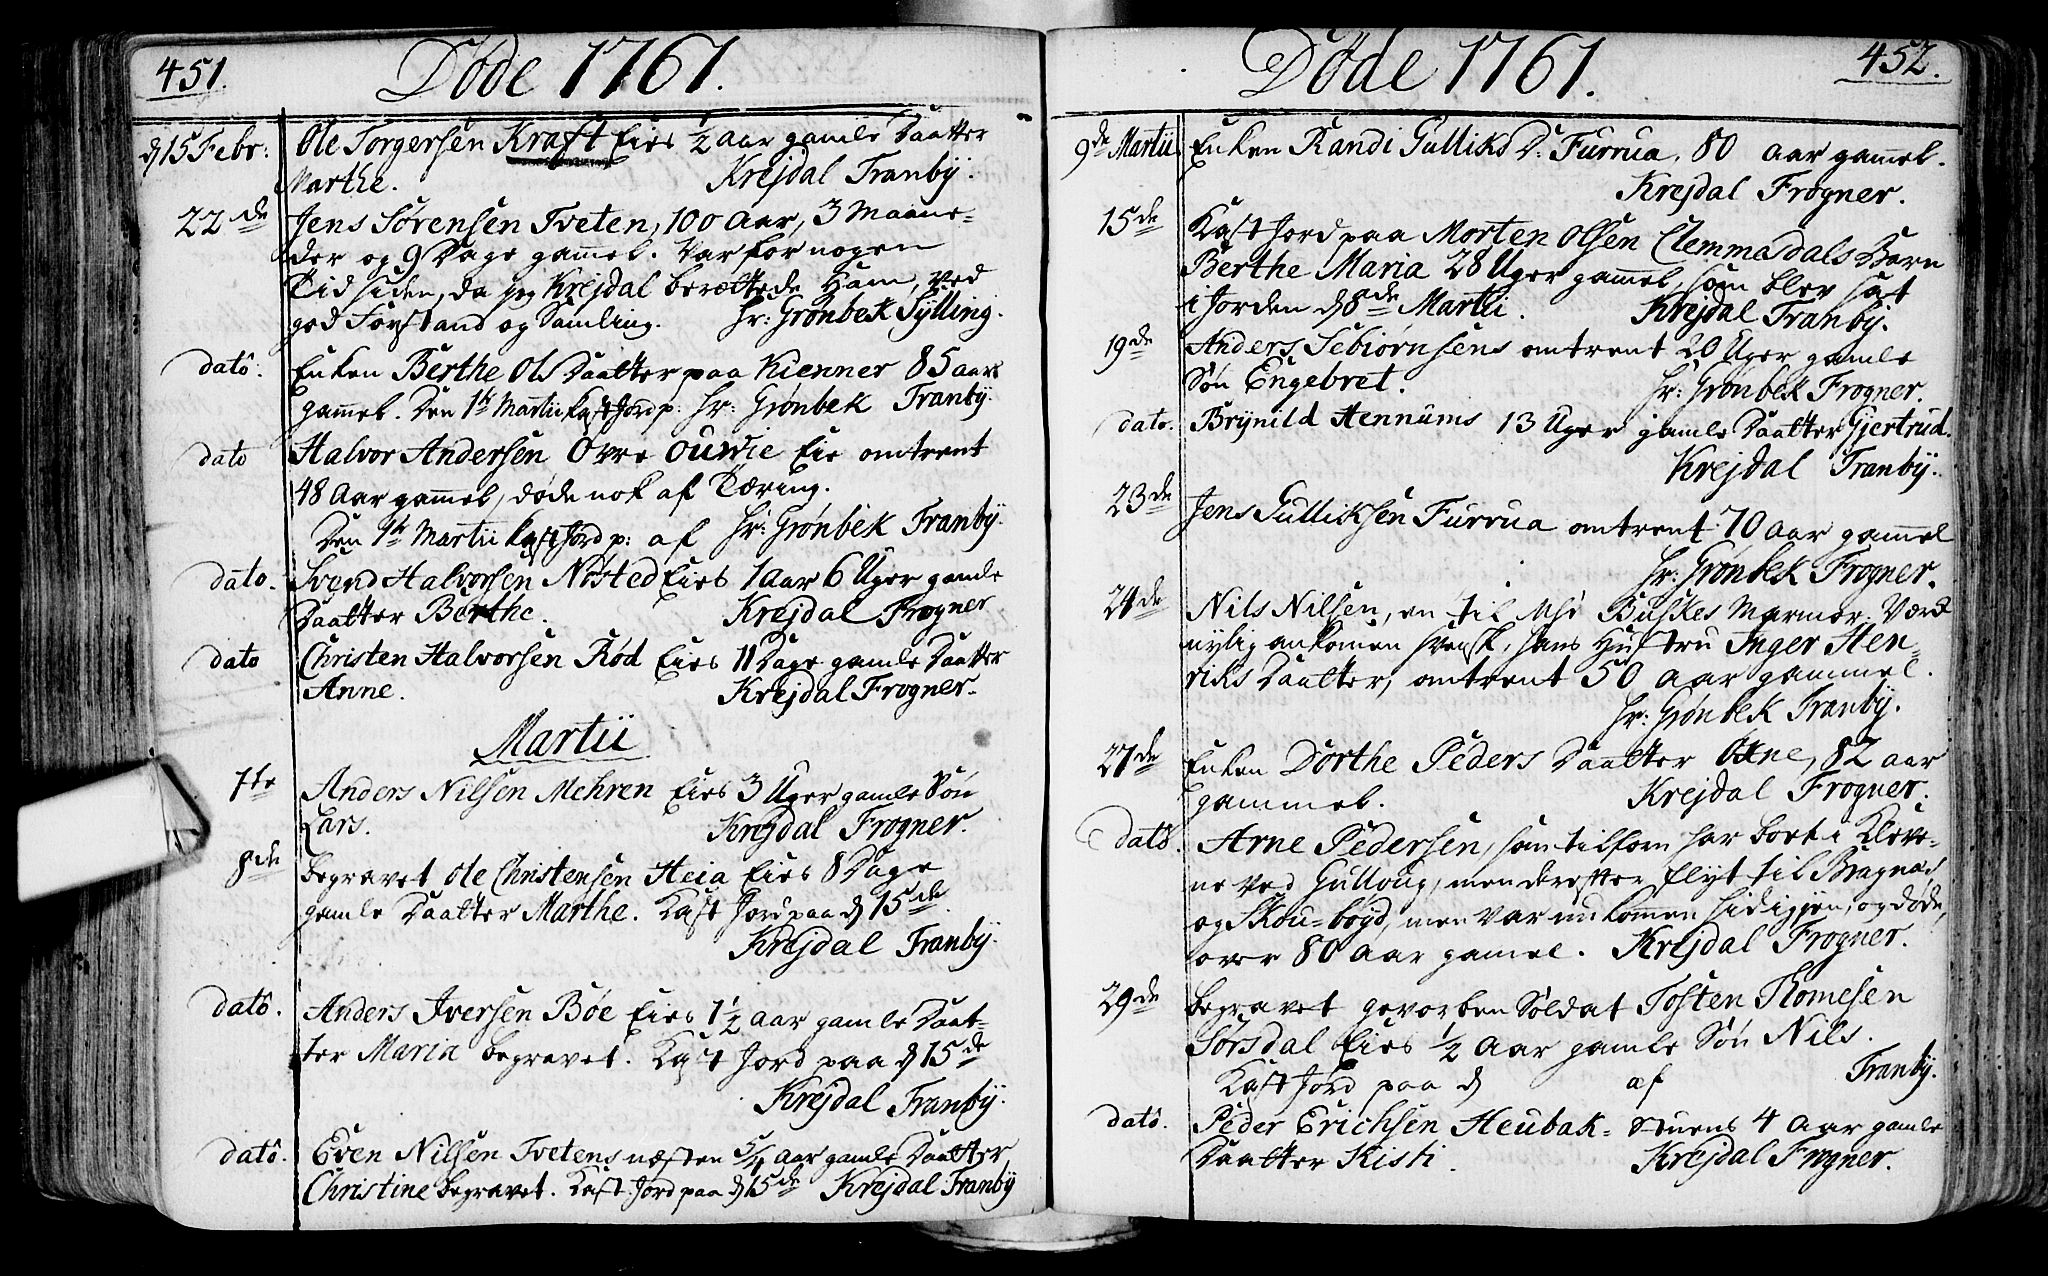 451.
Døde 1761.
d 15 Febr: Ole Torgersen Kraft Eies ½ aar gamle Daatter
Marthe. Krejdal Tranby.
22de Jens Sørensen Tveten, 100 Aar, 3 Maane-
der og 9 Dage gammel. Var for nogen
Tid siden, da jeg Krejdal berættede Ham, ved
god Forstand og Samling. Hr: Grønbek Sylling.
dato. Enken Berthe Ols Daatter paa Kienner 85 aar
gammel. Den 1te Martii kast Jord p: Hr: Grønbek Tranby.
dato Halvor Andersen Øvre Ouwie Eie omtrent
48 Aar gammel, døde nok af Tæring.
Den 1te Martii kast Jord p: af Hr: Grønbek Tranby.
dato. Svend Halvorsen Nøsted Eies 1 Aar 6 Uger gamle
Daatter Berthe. Krejdal Frogner
dato Christen Halvorsen Rød Eies 11 Dage gamle Daatter
Anne. Krejdal Frogner.
Martii
1te Anders Nilsen Mehren Eies 3 Uger gamle Søn
Lars. Krejdal Frogner.
8de begravet Ole Christensen Heia Eies 8 Dage
gamle Daatter Marthe. Kast Jord paa d 15de.
Krejdal Tranby.
dato. Anders Iversen Bøe Eies 1½ aar gamle Daat-
ter Maria begravet. Kast Jord paa d 15de
Krejdal Tranby.
dato. Even Nilsen Tvetens næsten 5/4 aar gamle Daatter
Christine begravet. Kast Jord paa d 15de Krejdal Tranby
452.
Døde 1761.
9de Martii Enken Randi Gulliks D: Furrua, 80 aar gammel.
Krejdal Frogner.
15de Kast Jord paa Morten Olsen Clemmasdals Barn
Berthe Maria 28 Uger gammel, som blev sat
i Jorden d 8de Martii. Krejdal Tranby.
19de Anders Tebiørnsens omtrent 20 Uger gamle
Søn Engebret. Hr: Grønbek Frogner.
dato. Brynild Hennums 13 Uger gamle Daatter Gjertrud.
Krejdal Tranby.
23de Jens Gulliksen Furrua omtrent 70 aar gammel
Hr: Grønbek Frogner.
24de Nils Nilsen, en til Msr Buskes Marmor-Værk
nylig ankomen svensk, hans Hustru Inger Hen-
riks Daatter, omtrent 50 aar gammel.
Hr: Grønbek Tranby.
27de Enken Dorthe Peders Daatter 82 aar
gammel. Krejdal Frogner.
dato. Arne Pedersen, som tilforn har boet i Kleve-
ne ved Gulloug, men derefter flyt til Bragnæs
og Skou-bøyd, men var nu komen hid igjen, og døde,
over 80 aar gamel. Krejdal Frogner.
29de begravet gevorben Soldat Tosten Romesen
Sørsdal Eies ½ Aar gamle Søn Nils.
Kast Jord paa d af Tranby.
dato. Peder Erichsen Heubak- stuens 4 Aar gamle
Daatter Kisti. Krejdal Frogner.